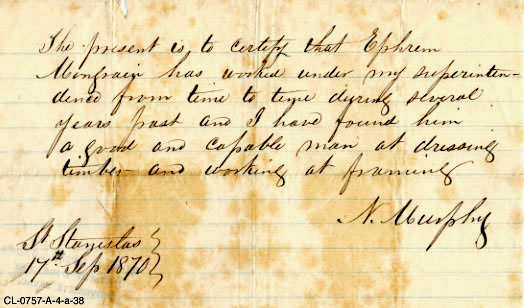 The present is to certify that Ephrem
Mongrain has worked under my superinten-
dence from time to time during several
years past and I have found him
a good and capable man at dressing
timber and working at framing
N. Murphy
St Stanislas
17th Sep 1870
CL-0757-A-4-a-38